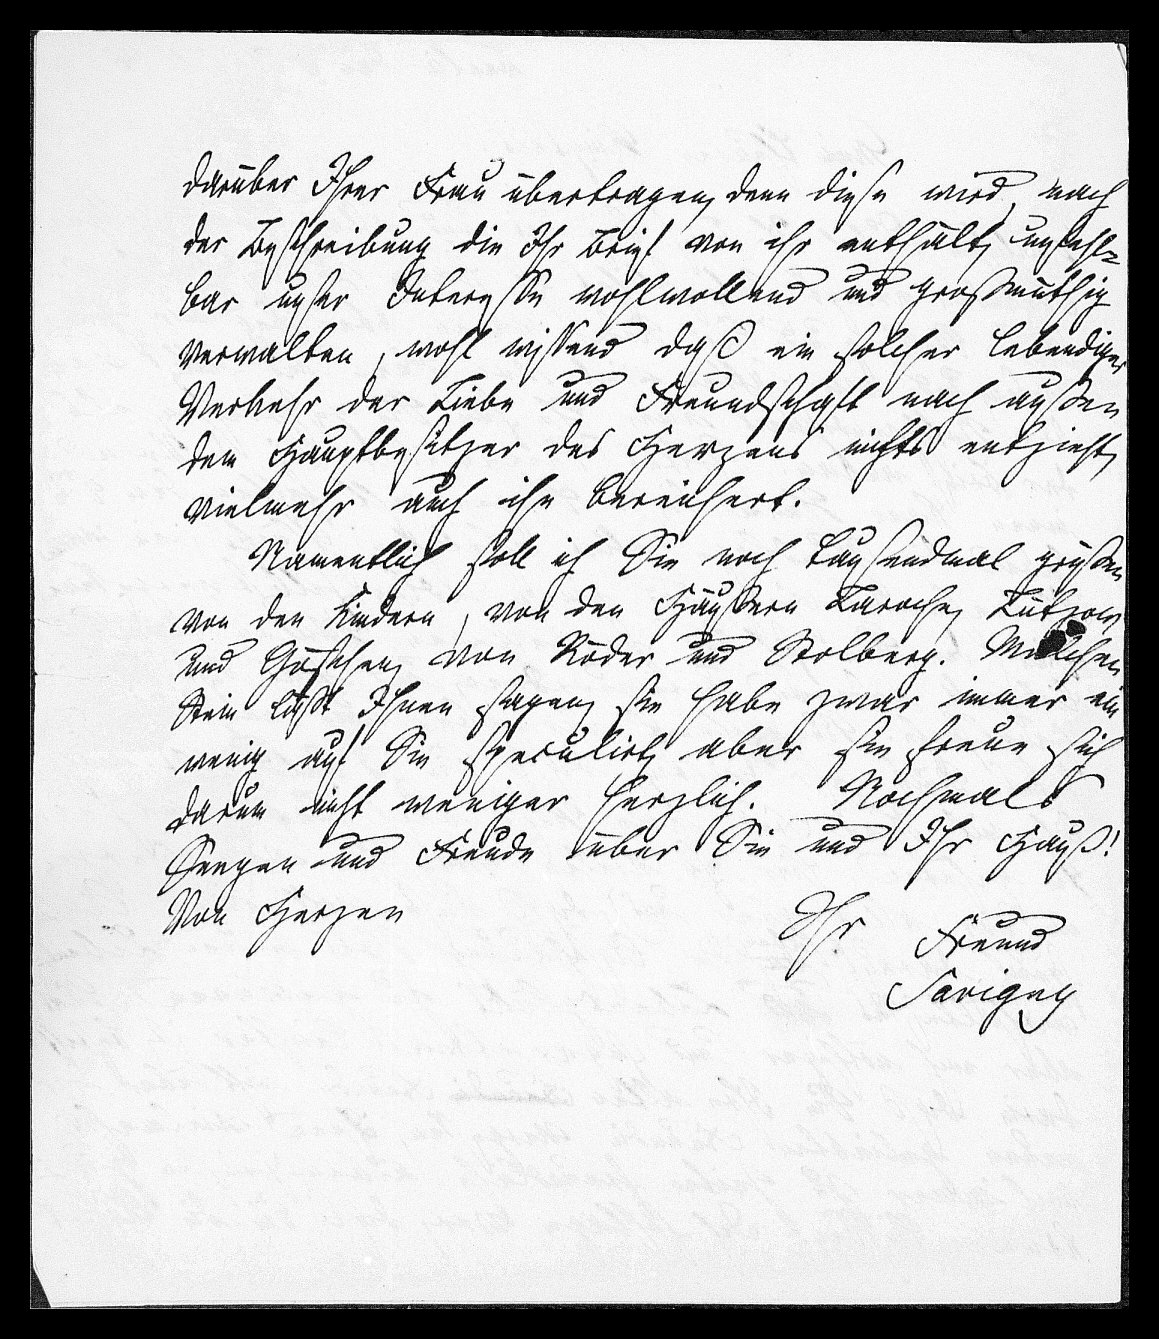 darüber Ihrer Frau übertragen, denn diese wird, nach
der Beschreibung die Ihr Brief von ihr enthält, unfehl-
bar unser Interesse wohlwollend und großmüthig
verwalten, wohl wissend daß ein solcher lebendiger
Verkehr der Liebe und Freundschaft nach außen
dem Hauptbesitzer des Herzens nichts entzieht,
vielmehr auch ihn bereichert.
Namentlich soll ich Sie noch tausendmal grüßen
von den Kindern, von den Häusern Laroche, Lützow,
und Göschen, von Röder und Stolberg. Malchen
Stein läßt Ihnen sagen, sie habe zwar immer ein
wenig auf Sie speculirt, aber sie freue sich
darum nicht weniger herzlich. Nochmals
Seegen und Freude über Sie und Ihr Hauß!
Von Herzen
Ihr Freund
Savigny